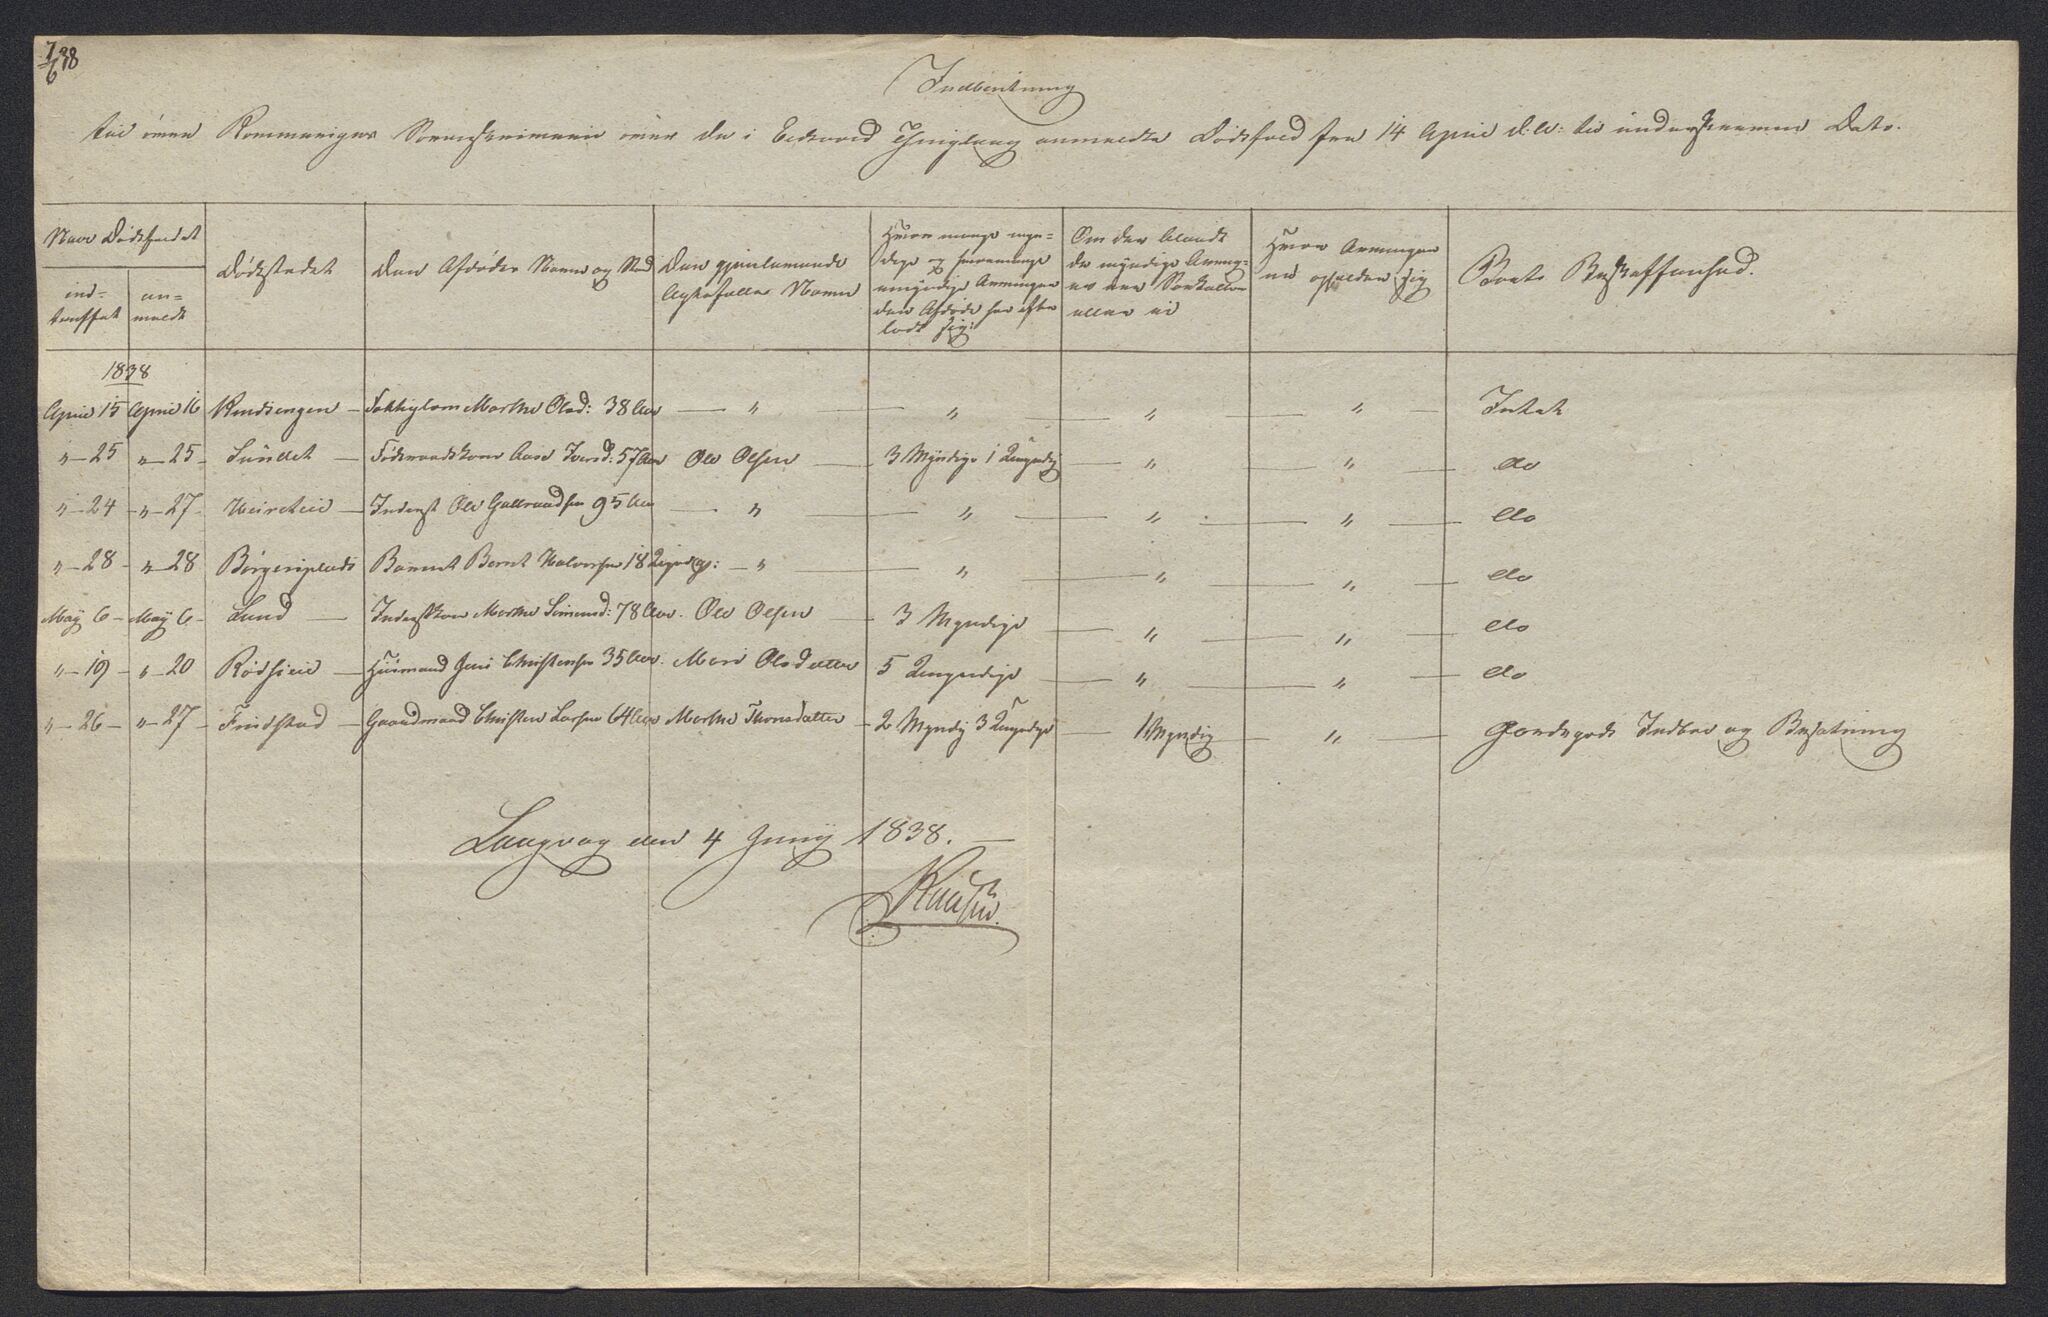 7/6 38
Indberetning
til øvre Rommeriges Sorenskriverie over de i Eidsvold Thinglaug anmeldte Dødsfald fra 14 April d.A: til underskrevne Dato.
Naar Dødsfaldet
ind-
truffet
an-
meldt
Dødsstedet
Den Afdødes Navn og Stand
Den gjenlevende
Ægtefælles Navn
Hvor mange myn-
dige og hvormange
umyndige Arvinger
den Afdøde har efter
ladt sig
Om der blandt
de myndige Arving-
er ere
eller ei
Hvor Arvingerne
opholder sig
Boets Beskaffenhed.
1838
April 15 April 16 Rudsengen — Fattiglem Marthe Olsd: 38 Aar — " — " — " — " — Intet
" — 25 " — 25 — Sundet — Føderaadskone Aase Iversd: 57 Aar Ole Olsen — 3 Myndige 1 Umyndig — " — " — do
" — 24 " — 27 — — Inderst Ole Gulbrandsen 95 Aar — " — " — " — " — do
" — 28 — " — 28 Børgersplads Barnet Bernt Halvorsen 18 Uger — " — " — " — " — do
May 6 — May 6 — Lund — Inderstkone Marthe Simensd: 78 Aar. Ole Olsen — 3 Myndige — " — " — do
" — 19 — " — 20 Rødsieie — Huusmand Jens Christensen 35 Aar. Mari Olsdatter 5 Umyndige — " — " — do
" — 26 — " — 27 — Findstad — Gaardmand Christen Larsen 64 Aar Marthe Thorsdatter — 2 Myndig 3 Umyndige — 1 Myndig — " — Gaardegods Indboe og Besætning
Langvag den 4 Juny 1838. —